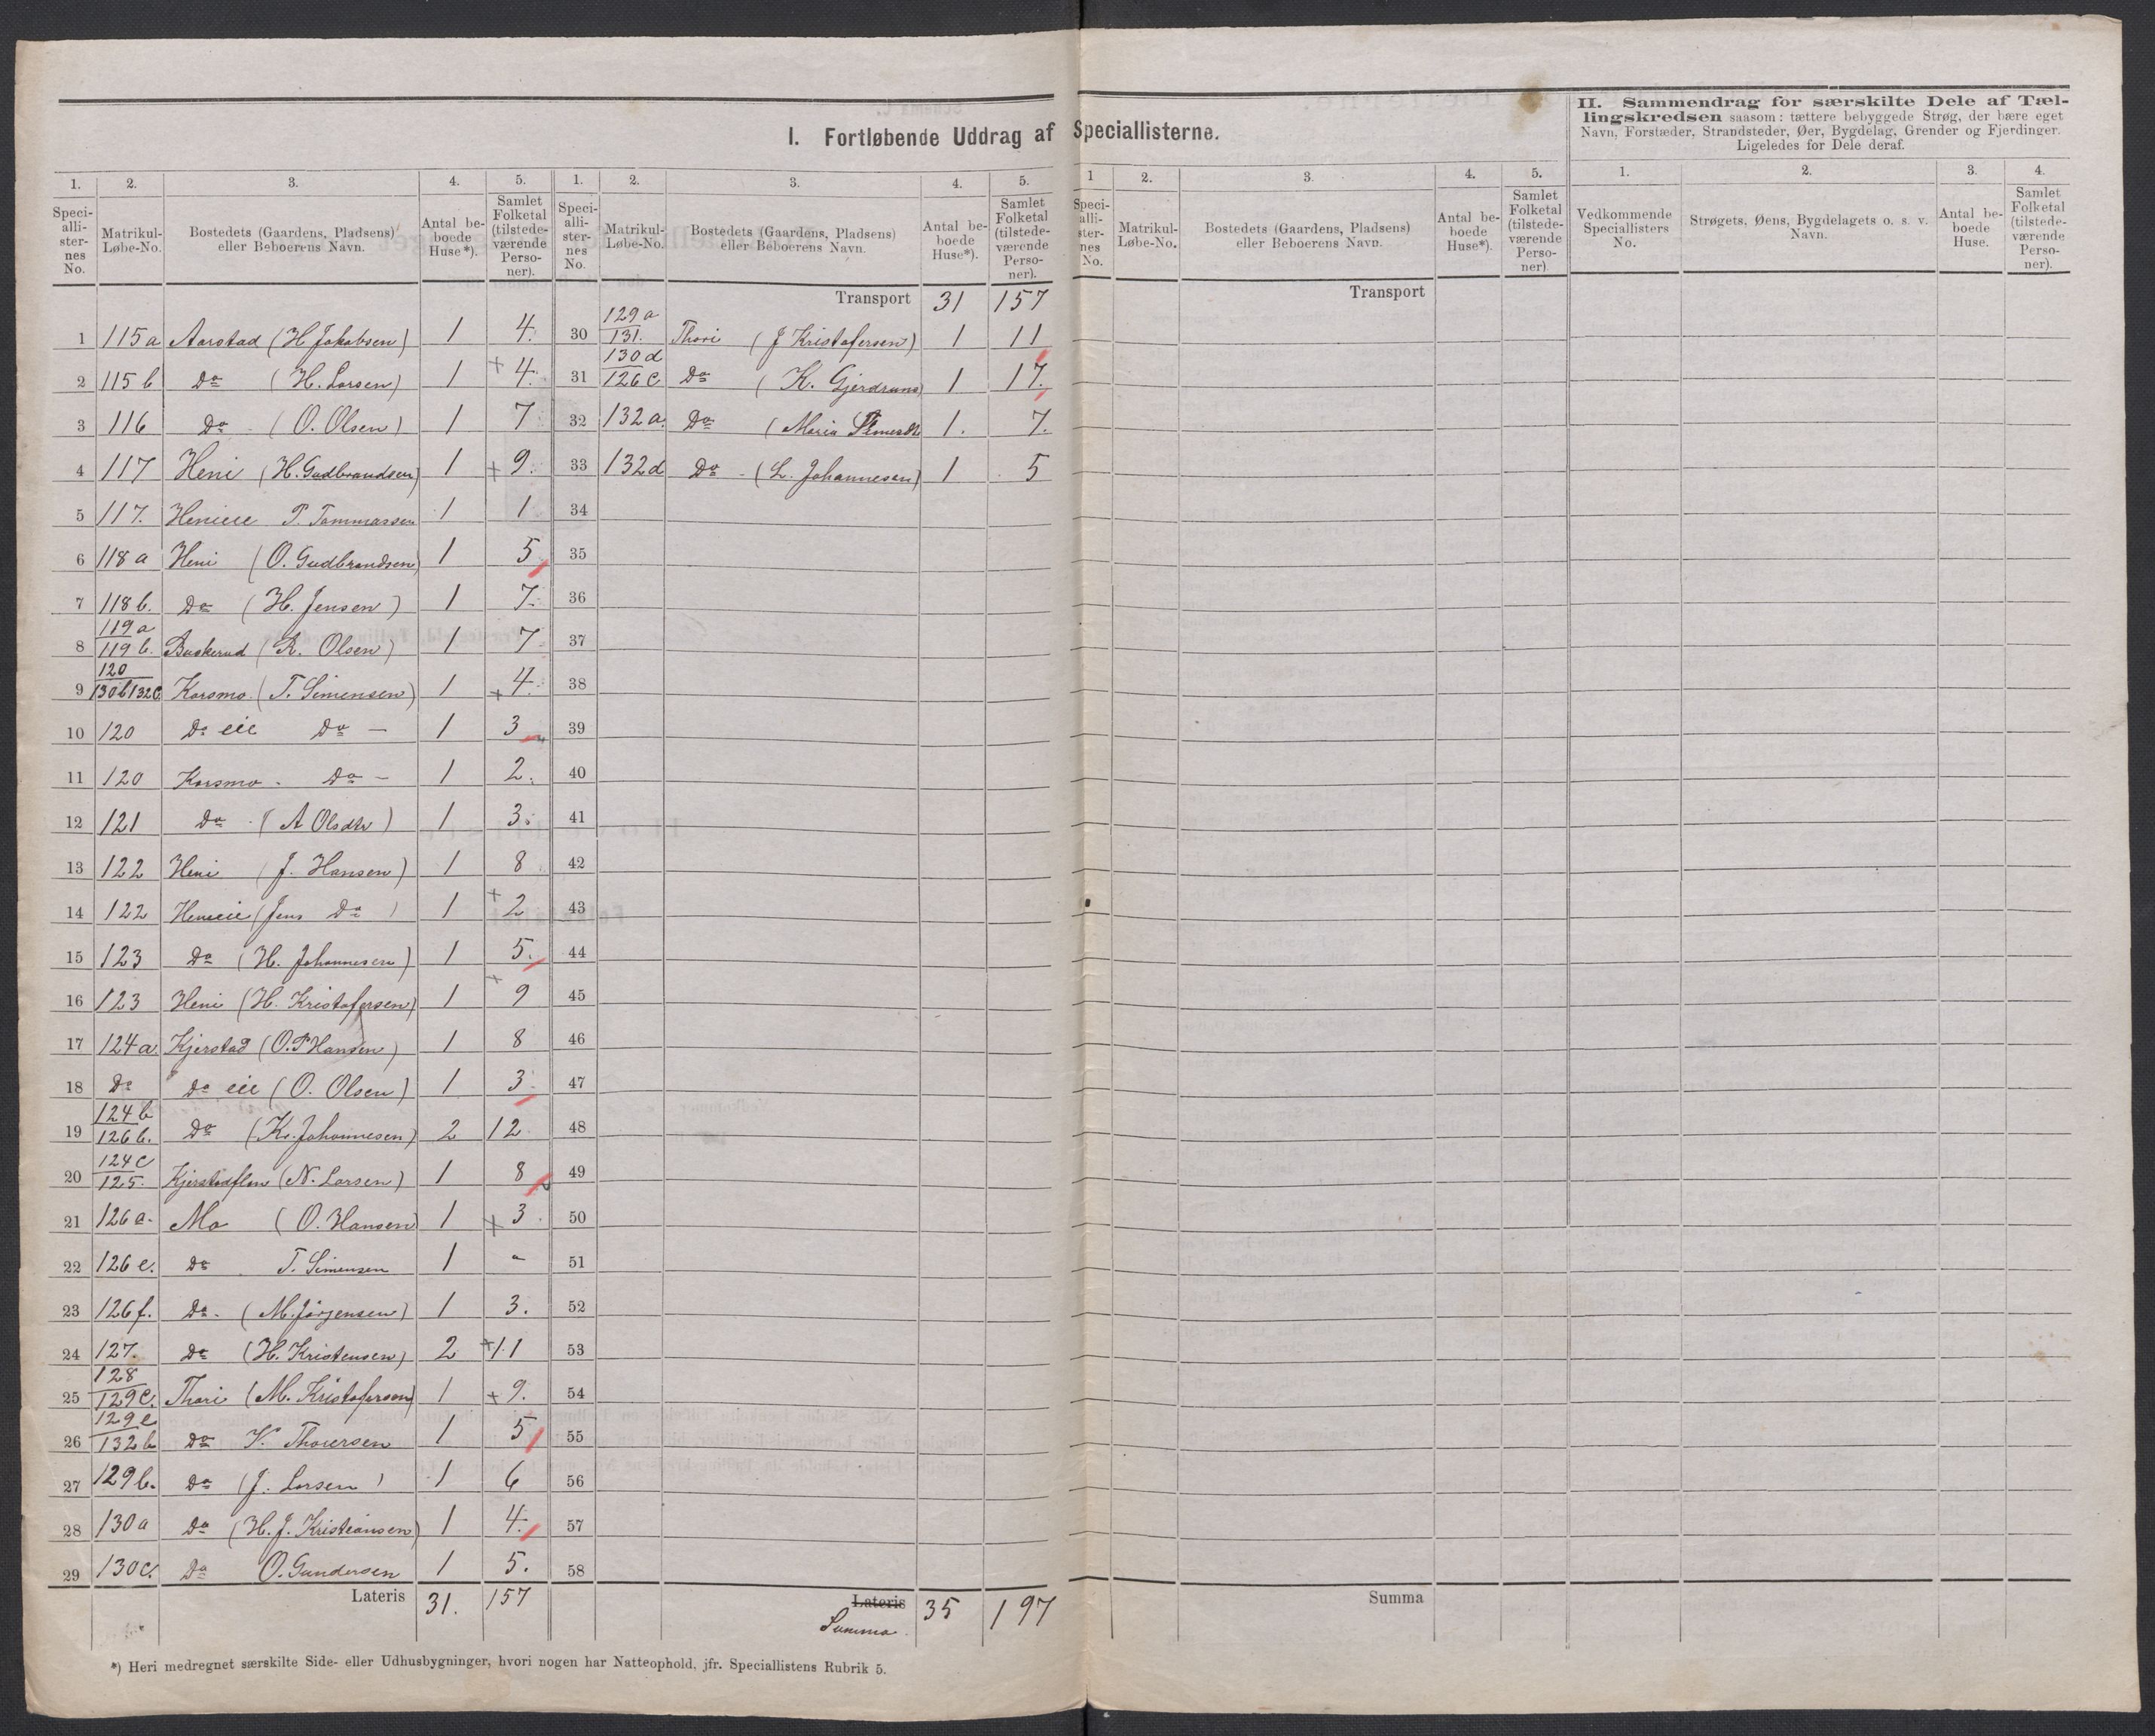 I. Fortløbende Uddrag af Speciallisterne.
II. Sammendrag for særskilte Dele af Tæl-
lingskredsen saasom: tættere bebyggede Strøg, der bære eget
Navn, Forstæder, Strandsteder, Øer, Bygdelag, Grender og Fjerdinger.
Ligeledes for Dele deraf.
1. 2. 3. 4. 5. 1. 2. 3. 4. 5. 1 2. 3. 4. 5. 1. 2. 3. 4.
Speci-alli-ster-nes No. Matrikul-Løbe-No. Bostedets (Gaardens, Pladsens) eller Beboerens Navn. Antal be-boede Huse*). Samlet Folketal (tilstede-værende Perso-ner).
Speci-alli-ster-nes No. Matrikul-Løbe-No. Bostedets (Gaardens, Pladsens) eller Beboerens Navn. Antal be-boede Huse*). Samlet Folketal (tilstede-værende Perso-ner).
Speci-alli-ster-nes No. Matrikul-Løbe-No. Bostedets (Gaardens, Pladsens) eller Beboerens Navn. Antal be-boede Huse*). Samlet Folketal (tilstede-værende Perso-ner).
Vedkommende Speciallisters No. Strøgets, Øens, Bygdelagets o. s. v. Navn. Antal be-boede Huse. Samlet Folketal (tilstede-værende Perso-ner).
1 115a Aarstad (H Jakobsen) 1 4.
2 115 b Do (H. Larsen) 1 + 4.
3 116 Do (O. Olsen) 1 7
4 117 Heni (H. Gudbrandsen) 1 + 9.
5 117. Henieie P. Tommassen 1 1
6 118 a Heni (O. Gudbrandsen) 1 5
7 118 b. Do (H. Jensen) 1 7.
8 119 a 119 b. Buskerud (R. Olsen) 1 7
9 120 130b 132c Korsmo. (T. Simensen) 1 + 4.
10 120 Do eie Do — 1 3
11 120 Korsmo - Do - 1 2.
12 121 Do (A Olsdtr) 1 3.
13 122 Heni (J. Hansen) 1 8
14 122 Henieie (Jens Do) 1 + 2
15 123 Do (H. Johannesen) 1 5.
16 123 Heni (H. Kristofersen) 1 + 9
17 124 a. Kjerstad (O. P Hansen) 1 8
18 Do Do eie (O. Olsen) 1 3.
19 124 b 126 b. Do (Kr. Johannesen) 2 12.
20 124 c 125. Kjerstadflen (N. Larsen) 1 8
21 126 a. Mo (O. Hansen) 1 + 3.
22 126 e. Do T. Simensen 1 -
23 126 f. Do. (M. Jörgensen) 1 3.
24 127. Do (H. Kristensen) 2 + 11
25 128 129 c. Thori (M. Kristofersen) 1 + 9.
26 129 e 132 b Do K. Thorersen 1 5
27 129 b. Do (J. Larsen) 1 6
28 130 a Do (H. J. Kristiansen) 1 4.
29 130 c. Do O. Gundersen 1 5.
Lateris 31. 157
Transport 31 157
30 129 a 131. Thori (J Kristofersen) 1 11
31 130 d 126 c Do (K. Gjerdrum) 1 17.
32 132 a. Do (Maria 1. 7.
33 132 d Do - (L. Johannesen) 1 5
34
35
36
37
38
39
40
41
42
43
44
45
46
47
48
49
50
51
52
53
54
55
56
57
58
Lateris 35 197
Summa.
Transport
Summa
*) Heri medregnet særskilte Side- eller Udhusbygninger, hvori nogen har Natteophold, jfr. Speciallistens Rubrik 5.